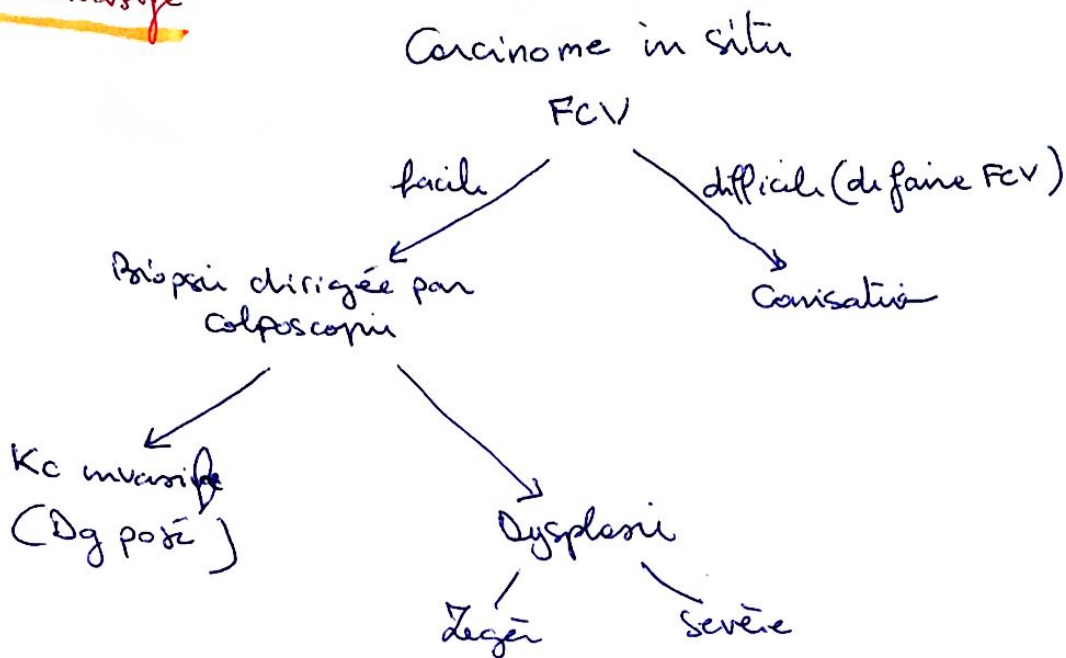 Carcinome in situ
FCV
facile
difficile (de faire FCV)
Biopsie dirigée par
colposcopie
Conisation
Kc invasif
(Dg posé)
Dysplasie
Légèr
Sevère